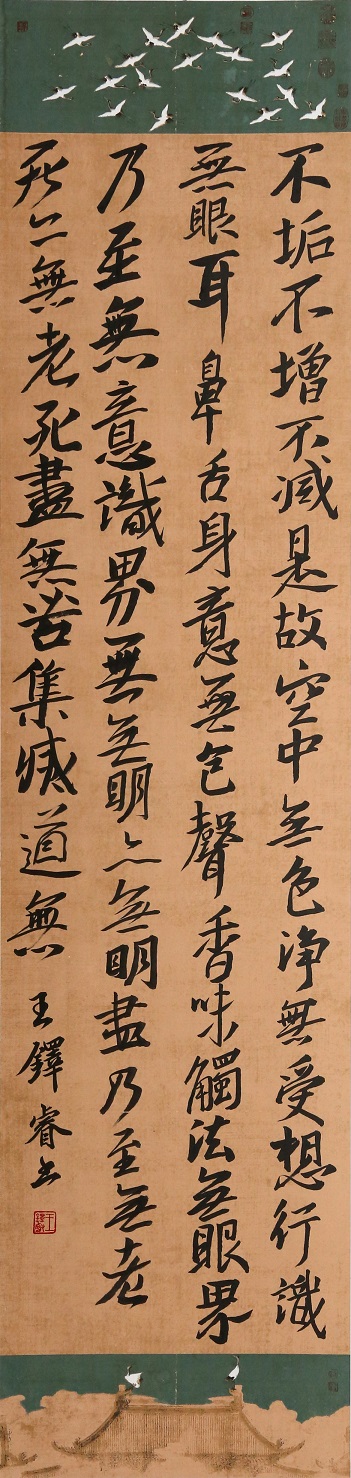 不垢不增不减是故空中无色净無受想行識
無眼耳鼻舌身意無色聲香味觸法無眼界
乃至無意識界無無明亦無明盡乃至無老
死亦無老死盡無苦集滅道無
王鐸睿书